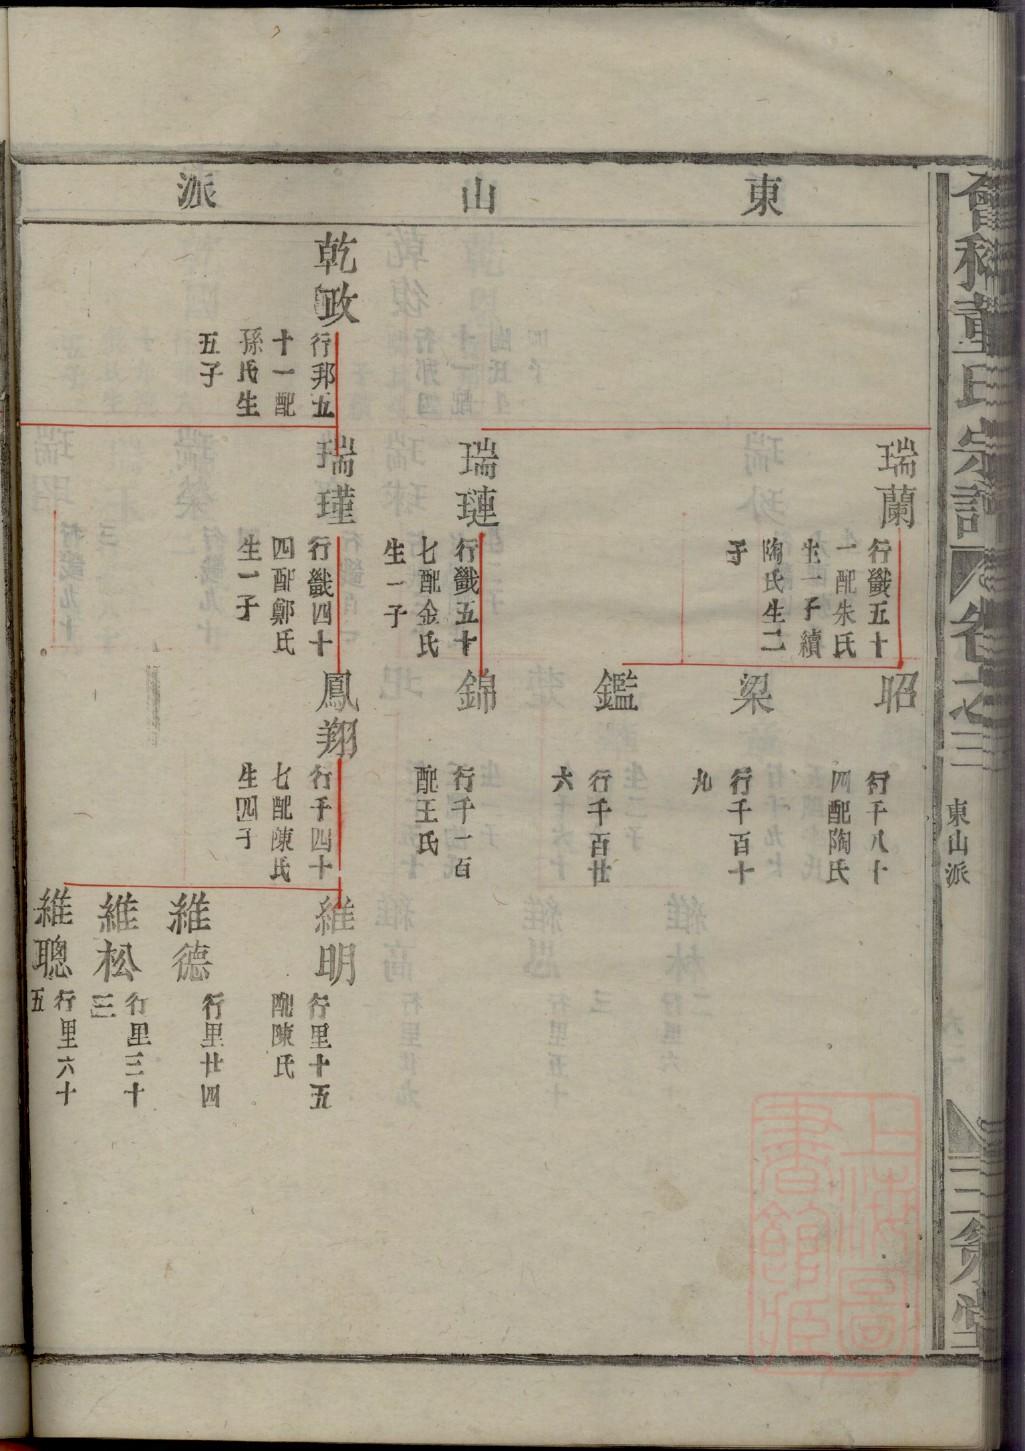 東山派
董氏宗譜
卷之三
東山派
三策堂
瑞蘭
行韱五十
一配朱氏
生一子續
陶氏生二
子
昭
行千八十
四配陶氏
梁
行千百十
九
鑑
行千百廿
六
瑞璉
行韱五十
七配金氏
生一子
錦
行千一百
配王氏
乾政
行邦五
十一配
孫氏生
五子
瑞瑾
行韱四十
四配鄭氏
生一子
鳳翔
行千四十
七配陳氏
生四子
維明
行里十五
配陳氏
維德
行里廿四
維松
行里三十
三
維聰
行里六十
五
上海圖
書館藏